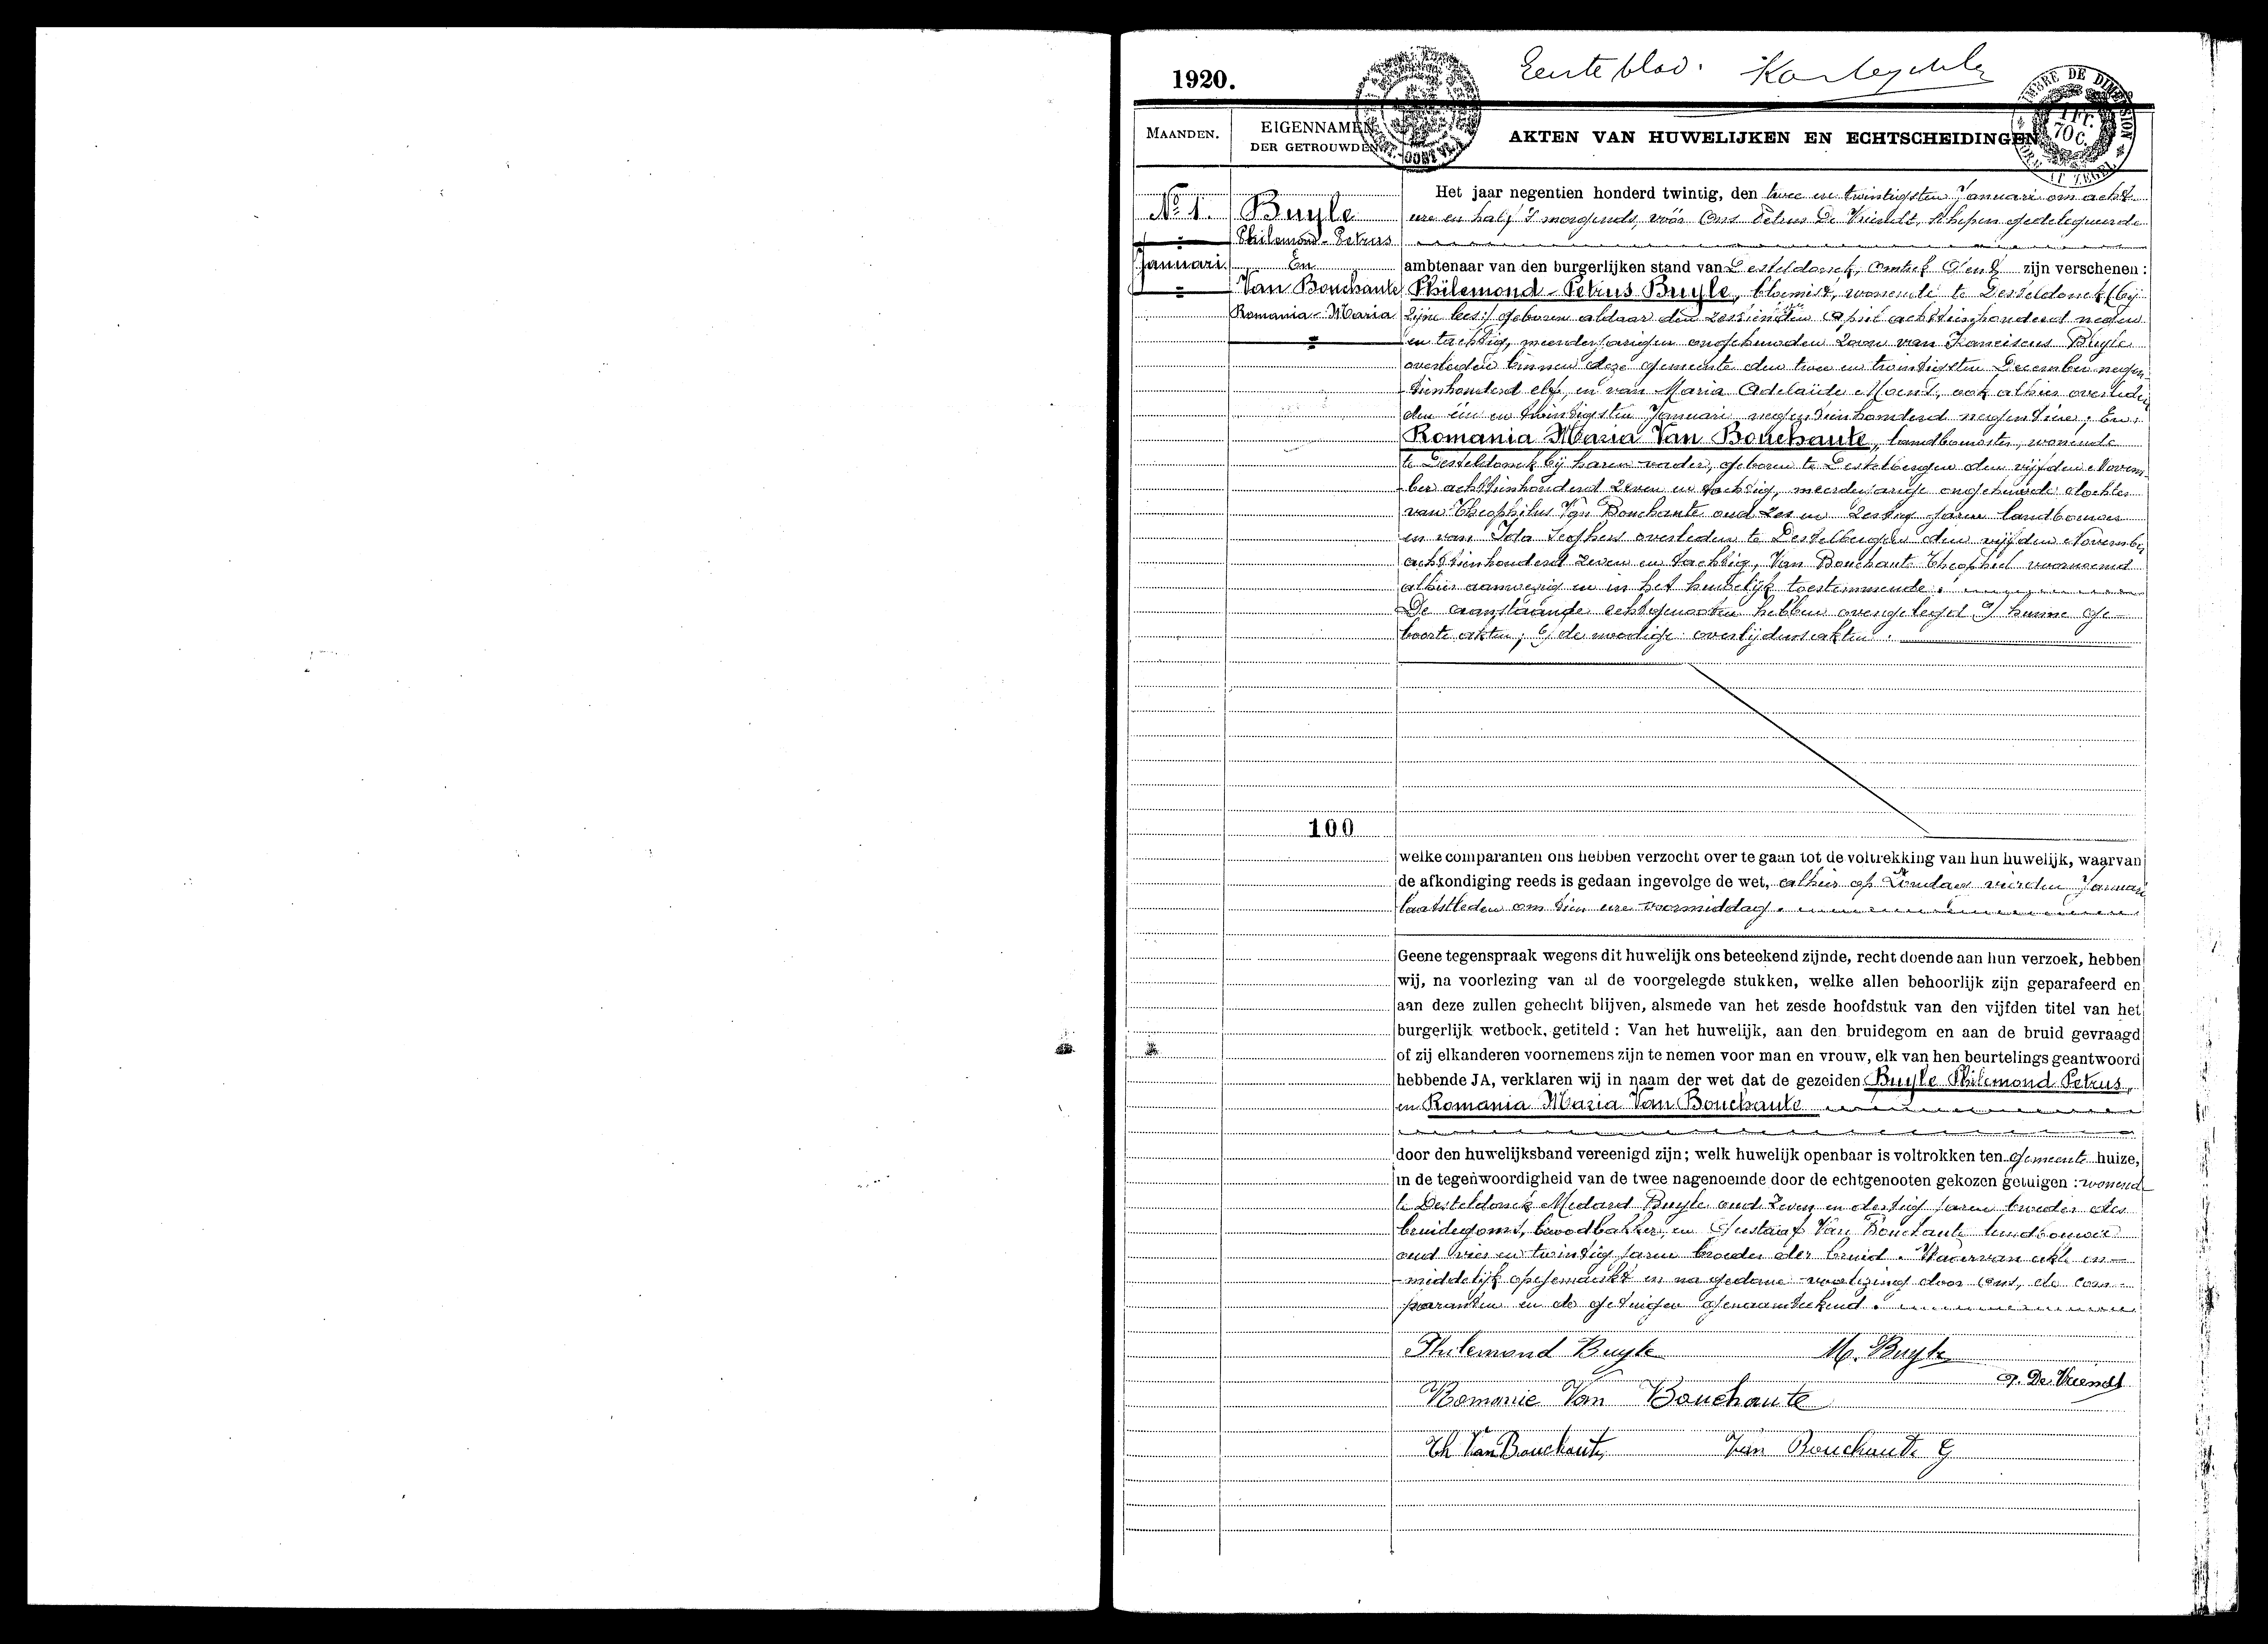 1920.
Eerste blad.
TIMBRE DE DIMENSION
1 FR. 70 C.
MAANDEN.
EIGENNAMEN DER GETROUWDEN
AKTEN VAN HUWELIJKEN EN ECHTSCHEIDINGEN
No 1.
Januari
Buyle
Philemond-Petrus
En
Van Bouchaute
Romania-Maria
Het jaar negentien honderd twintig, den twee en twintigsten Januari om acht
ure en half 's morgends, vóór Ons Petrus De Vriendt, Schepen gedelegueerde
ambtenaar van den burgerlijken stand van Desteldonck, zijn verschenen :
Philemond-Petrus Buyle, bloemist, wonende te Desteldonck (bij
zijne geboren aldaar den zestienden April achttienhonderd negen
en tachtig, meerderjarigen ongehuwden zoon van Franciscus Buyle
overleden binnen deze gemeente den twee en twintigsten December negen-
tienhonderd elf, en van Maria Adelaïde Moens, ook alhier overleden
den één en twintigsten Januari negentienhonderd negentien; En
Romania Maria Van Bouchaute, landbouwster, wonende
te Desteldonck bij haren vader, geboren te Destelbergen den vijfden Novem-
ber achttienhonderd zeven en tachtig, meerderjarige ongehuwde dochter
van Theophilus Van Bouchaute oud zes en zestig jaren landbouwer
en van Ida overleden te Destelbergen den vijfden November
achttienhonderd zeven en tachtig, Van Bouchaute Theophiel voornoemd
alhier aanwezig en in het huwelijk toestemmende.
De aanstaande echtgenooten hebben overgelegd a) hunne ge-
boorte akten; b) de noodige overlijdensakten.
100
welke comparanten ons hebben verzocht over te gaan tot de voltrekking van hun huwelijk, waarvan
de afkondiging reeds is gedaan ingevolge de wet, alhier op Zondag vierden Januari
laatstleden om tien ure voormiddag.
Geene tegenspraak wegens dit huwelijk ons beteekend zijnde, recht doende aan hun verzoek, hebben
wij, na voorlezing van al de voorgelegde stukken, welke allen behoorlijk zijn geparafeerd en
aan deze zullen gehecht blijven, alsmede van het zesde hoofdstuk van den vijfden titel van het
burgerlijk wetboek, getiteld : Van het huwelijk, aan den bruidegom en aan de bruid gevraagd
of zij elkanderen voornemens zijn te nemen voor man en vrouw, elk van hen beurtelings geantwoord
hebbende JA, verklaren wij in naam der wet dat de gezeiden Buyle Philemond Petrus,
en Romania Maria Van Bouchaute
door den huwelijksband vereenigd zijn; welk huwelijk openbaar is voltrokken ten gemeente huize,
in de tegenwoordigheid van de twee nagenoemde door de echtgenooten gekozen getuigen : wonend
te Desteldonck Medard Buyle oud zeven en dertig jaren broeder des
bruidegoms, broodbakker, en Gustaaf Van Bouchaute landbouwer
oud vier en twintig jaren broeder der bruid. Waarvan akte on-
middelijk opgemaakt en na gedane voorlezing door ons, de com-
paranten en de getuigen genaamteekend.
Philemond Buyle
M. Buyle
P. De Vriendt
Romanie Van Bouchaute
Th Van Bouchaute
Van Bouchaute G